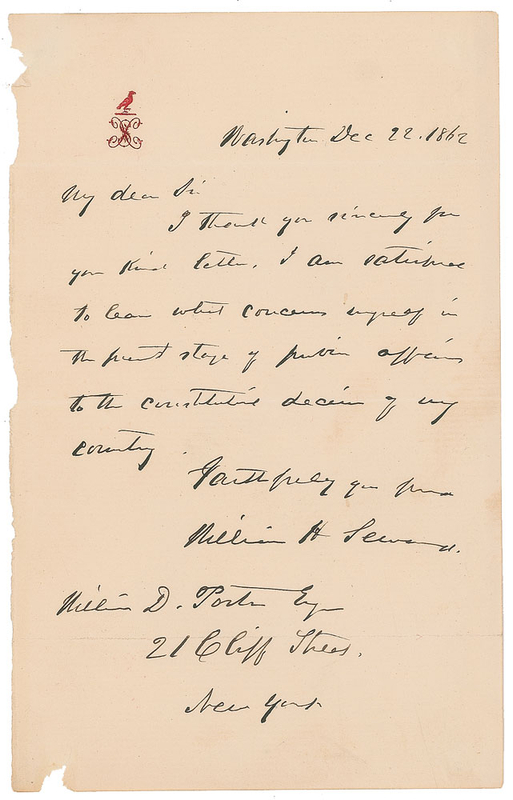 Washington Dec 22. 1862
My dear Sir
I thank you sincerely for
your kind letter. I am satisfied
to leave what concerns myself in
the present stage of public affairs
to the constitutional decision of my
country.
Faithfully your friend
William H Seward.
William D. Porter Esq
21 Cliff Street.
New York